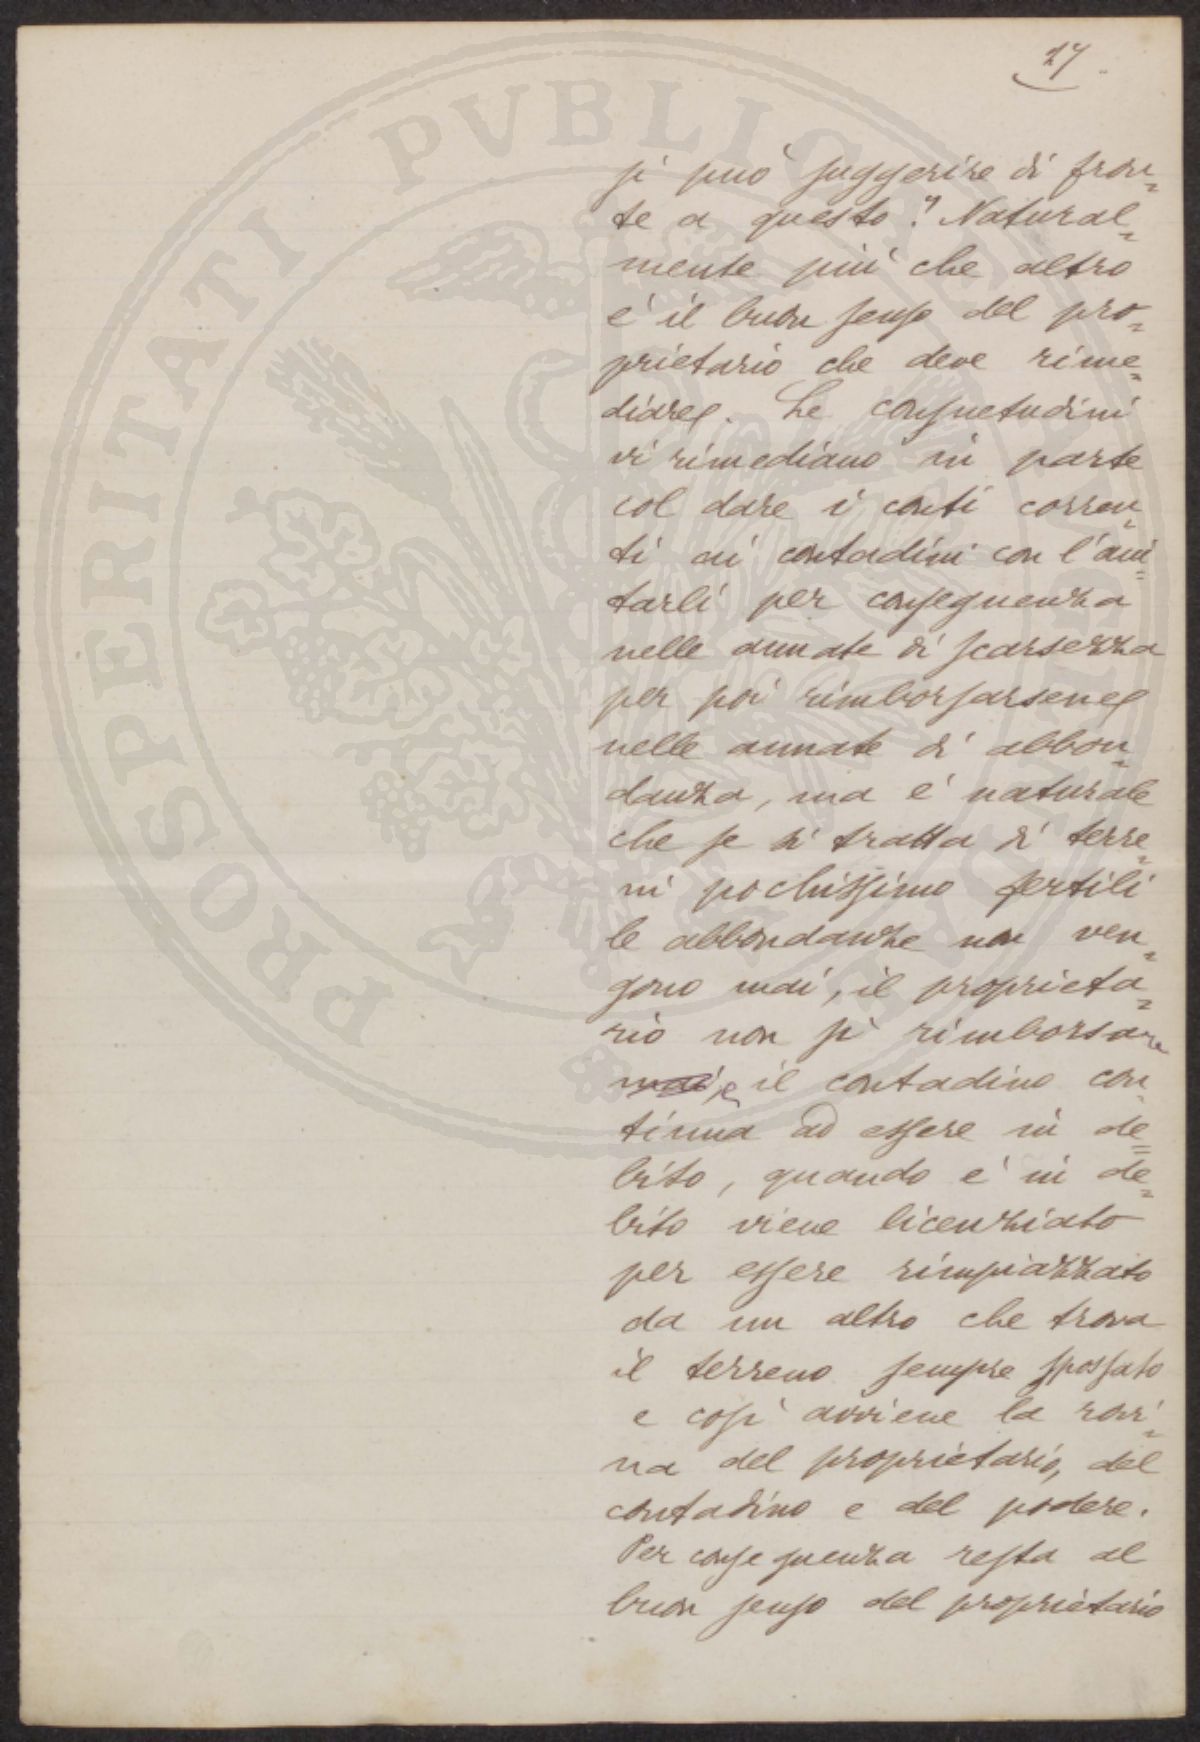 27
si può suggerire di fron=
te a questo? Natural=
mente più che altro
è il buon senso del pro=
prietario che deve rime=
diare. Le consuetudini
vi rimediano in parte
col dare i conti corren=
ti ai contadini con l'aiu=
tarli per conseguenza
nelle annate di scarsezza
per poi rimborsarsene
nelle annate di abbon=
danza, ma è naturale
che se si tratta di terre=
ni pochissimo fertili
le abbondanze non ven=
gono mai, il proprieta=
rio non si rimborsa
mai, e il contadino con
tinua ad essere in de=
bito, quando è in de=
bito viene licenziato
per essere rimpiazzato
da un altro che trova
il terreno sempre spossato
e così avviene la rovi=
na del proprietario, del
contadino e del podere.
Per conseguenza resta al
buon senso del proprietario
PROSPERITATI PVBLICAE